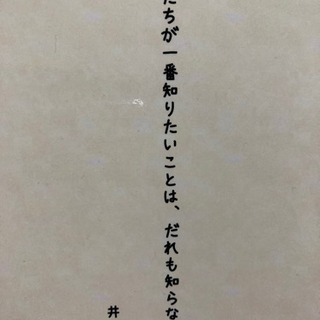 たちが一番知りたいことは、だれも知らな
井